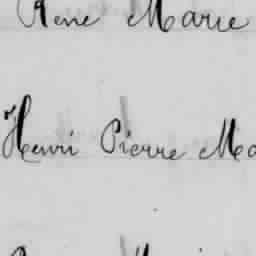 René Marie
Henri Pierre Ma